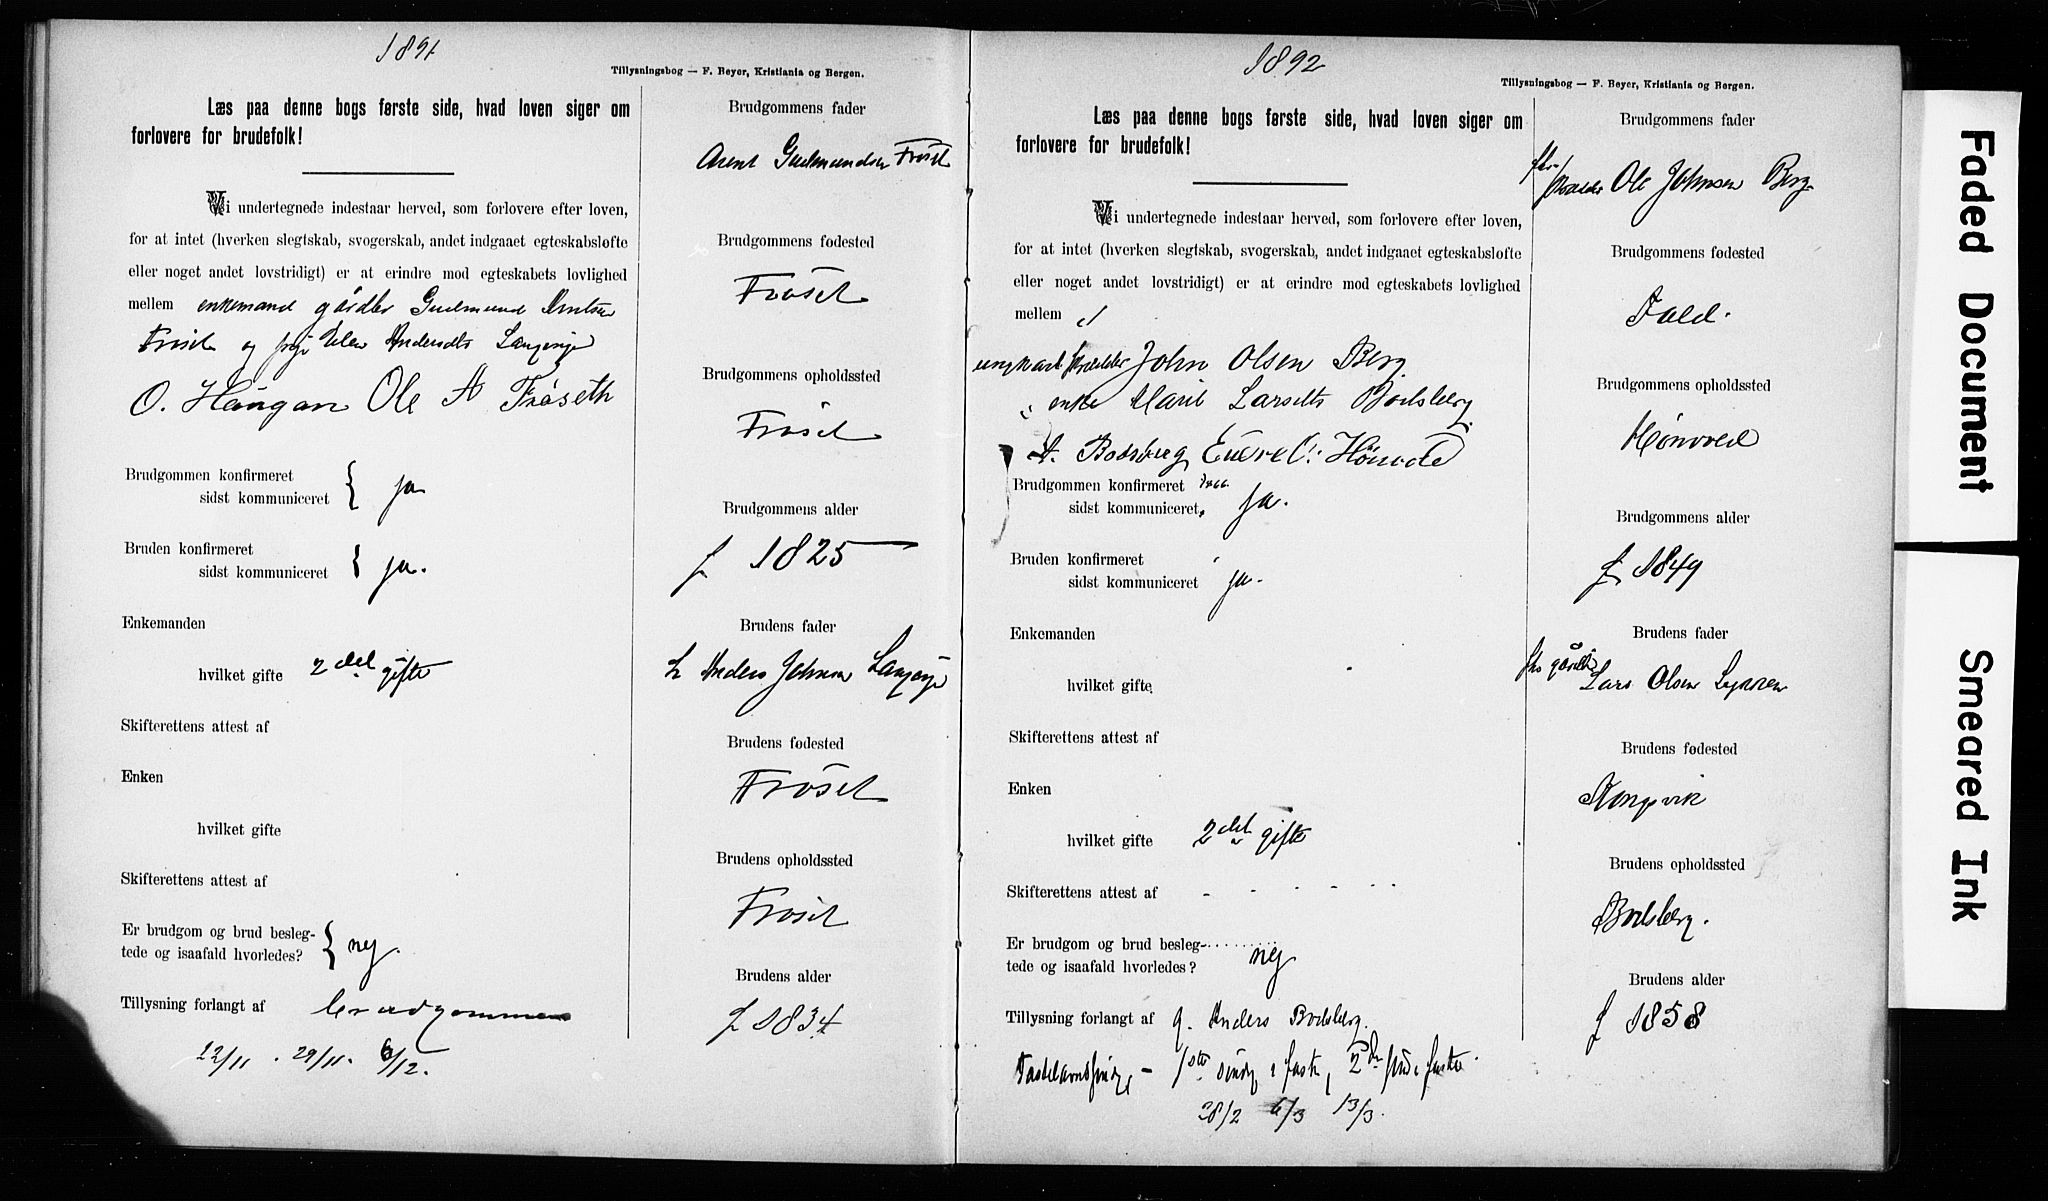 1891
Tillysningsbog — F. Beyer, Kristiania og Bergen.
Læs paa denne bogs første side, hvad loven siger om
forlovere for brudefolk!
Vi undertegnede indestaar herved, som forlovere efter loven,
for at intet (hverken slegtskab, svogerskab, andet indgaaet egteskabsløfte
eller noget andet lovstridigt) er at erindre mod egteskabets lovlighed
mellem enkemand gårdbr Gudmund Arntsen
Frøset og pige Anders Langvige
O. Haugan Ole A Frøseth
Brudgommen konfirmeret
sidst kommuniceret } ja
Bruden konfirmeret
sidst kommuniceret } ja.
Enkemanden
hvilket gifte 2det gifte
Skifterettens attest af
Enken
hvilket gifte
Skifterettens attest af
Er brudgom og brud besleg-
tede og isaafald hvorledes? } nej.
Tillysning forlangt af brudgommen
22/11 . 29/11 . 6/12.
Brudgommens fader
Arent Gudmundsen Frøset
Brudgommens fødested
Frøset
Brudgommens opholdssted
Frøset
Brudgommens alder
f 1825
Brudens fader
Anders Johnsen
Brudens fødested
Frøset
Brudens opholdssted
Frøset
Brudens alder
f 1834
1892
Tillysningsbog — F. Beyer, Kristiania og Bergen.
Læs paa denne bogs første side, hvad loven siger om
forlovere for brudefolk!
Vi undertegnede indestaar herved, som forlovere efter loven,
for at intet (hverken slegtskab, svogerskab, andet indgaaet egteskabsløfte
eller noget andet lovstridigt) er at erindre mod egteskabets lovlighed
mellem
ungkarl John Olsen Berg
enke Marit Larsdtr Bodsberg
A. Bodsberg
Brudgommen konfirmeret
sidst kommuniceret, ja.
Bruden konfirmeret
sidst kommuniceret ja.
Enkemanden
hvilket gifte
Skifterettens attest af
Enken
hvilket gifte 2det gifte
Skifterettens attest af - - - - - -
Er brudgom og brud besleg-
tede og isaafald hvorledes? nej
Tillysning forlangt af g. Anders Bodsberg.
Fastelavnssøndag — 1ste sønd i faste, 2den sønd i faste
28/2 6/3 13/3.
Brudgommens fader
Ole Johnsen Berg
Brudgommens fødested
Fald.
Brudgommens opholdssted
Mønvold
Brudgommens alder
f 1849
Brudens fader
Lars Olsen
Brudens fødested
Kongsvik
Brudens opholdssted
Bodsberg.
Brudens alder
f 1858
Faded Document
Smeared Ink